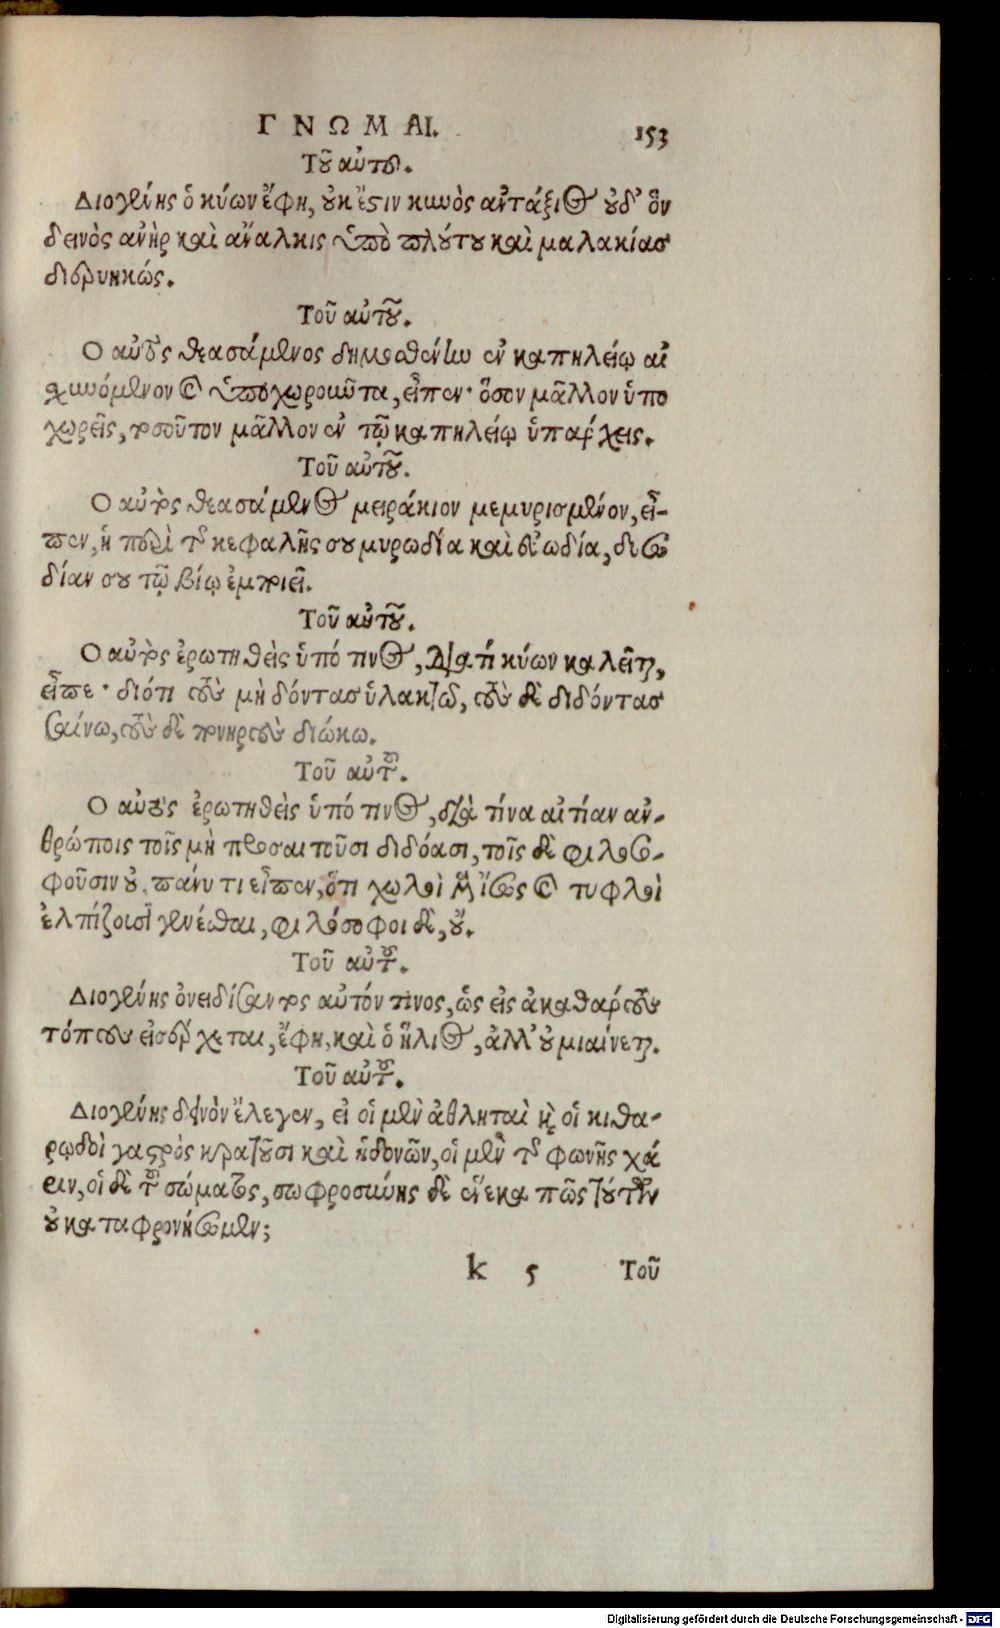 ΓΝΩΜΑΙ. 153
Τοῦ αὐτοῦ.
Διογένης ὁ κύων ἔφη, οὐκ ἔστιν κυνὸς ἀντάξιος οὐδ' ὃν
δεινὸς ἀνὴρ καὶ ἄναλκις ὑπὸ πλούτου καὶ μαλακίας
Τοῦ αὐτοῦ.
Ο αὐτὸς θεασάμενος δημοσθένην ἐν καπηλείῳ αἰ
χυνόμενον καὶ ὑποχωροῦντα, εἶπεν· ὅσον μᾶλλον ὑπο
χωρεῖς, τοσοῦτον μᾶλλον ἐν τῷ καπηλείῳ ὑπάρχεις.
Τοῦ αὐτοῦ.
Ο αὐτὸς θεασάμενος μειράκιον μεμυρισμένον, εἶ-
πεν, ἡ περὶ τῆς κεφαλῆς σου μυρωδία καὶ εὐωδία, δυσω
δίαν σου τῷ βίῳ ἐμποιεῖ.
Τοῦ αὐτοῦ.
Ο αὐτὸς ἐρωτηθεὶς ὑπό τινος, Διατί κύων καλεῖται,
εἶπε· διότι τοὺς μὴ δόντας ὑλακτῶ, τοὺς δὲ διδόντας
σαίνω, τοὺς δὲ πονηροὺς διώκω.
Τοῦ αὐτοῦ.
Ο αὐτὸς ἐρωτηθεὶς ὑπό τινος, διὰ τίνα αἰτίαν ἀν-
θρώποις τοῖς μὴ προσαιτοῦσι διδόασι, τοῖς δὲ φιλοσο-
φοῦσιν οὐ πάνυ τι εἶπεν, ὅτι χωλοὶ μὲν ἴσως καὶ τυφλοὶ
ἐλπίζουσι γενέσθαι, φιλόσοφοι δὲ, οὔ.
Τοῦ αὐτοῦ.
Διογένης ὀνειδίσαντος αὐτόν τινος, ὡς εἰς ἀκαθάρτους
τόπους εἰσέρχεται, ἔφη, καὶ ὁ ἥλιος, ἀλλ' οὐ μιαίνεται.
Τοῦ αὐτοῦ.
Διογένης δεινὸν ἔλεγεν, εἰ οἱ μὲν ἀθληταὶ καὶ οἱ κιθα-
ρῳδοὶ γαστρὸς κρατοῦσι καὶ ἡδονῶν, οἱ μὲν τῆς φωνῆς χά
ριν, οἱ δὲ τοῦ σώματος, σωφροσύνης δὲ ἕνεκα πῶς τούτων
οὐ καταφρονήσωμεν;
k 5 Τοῦ
Digitalisierung gefördert durch die Deutsche Forschungsgemeinschaft - DFG